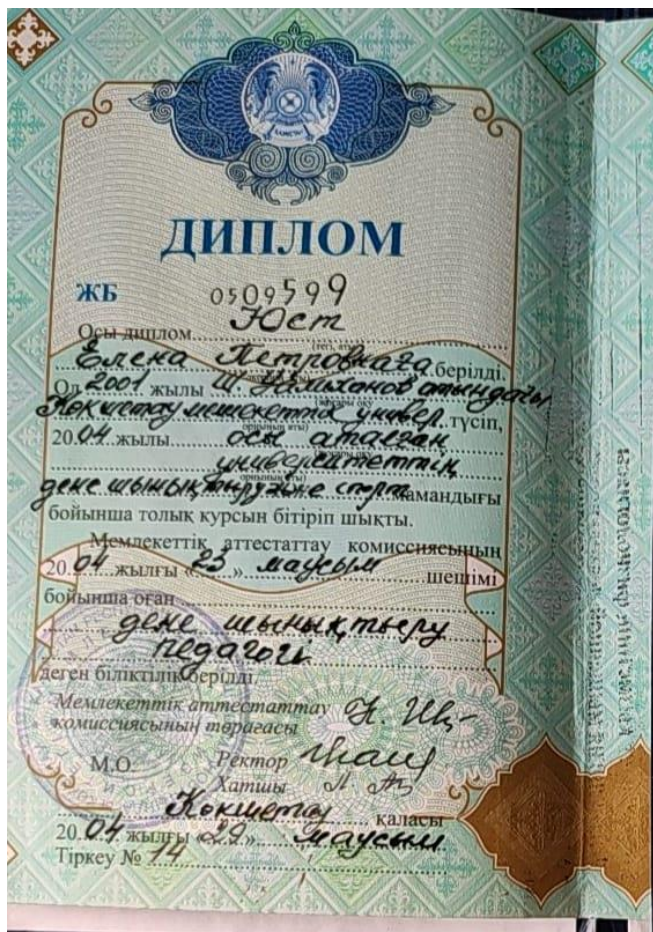 ДИПЛОМ
ЖБ 0509599
Осы диплом Юст
(тегі, аты
Елена Петровнаға берілді.
Ол 2001 жылы Ш Уәлиханов атындағы
Көкшетау мемлекеттік универ. түсіп,
2004 жылы осы аталған
университеттің
дене шынықтыру және спорт мамандығы
бойынша толық курсын бітіріп шықты.
Мемлекеттік аттестаттау комиссиясының
2004 жылғы «23» маусым шешімі
бойынша оған
дене шынықтыру
педагогі
деген біліктілік берілді.
Мемлекеттік аттестаттау
комиссиясының төрағасы
М.О. Ректор
Хатшы
Көкшетау қаласы
2004 жылғы «29» маусым
Тіркеу № 14